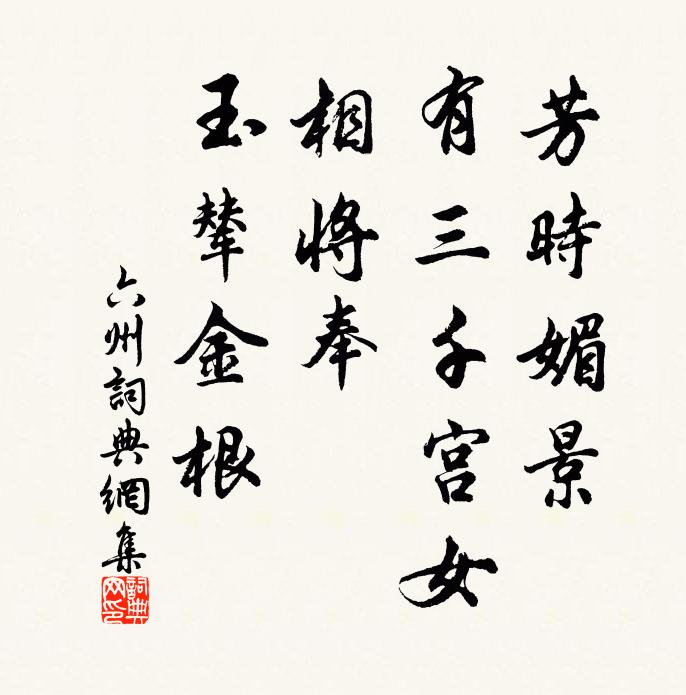 芳時媚景
有三千宮女
相將奉
玉輦金根
六州詞典網集
詞典
网印